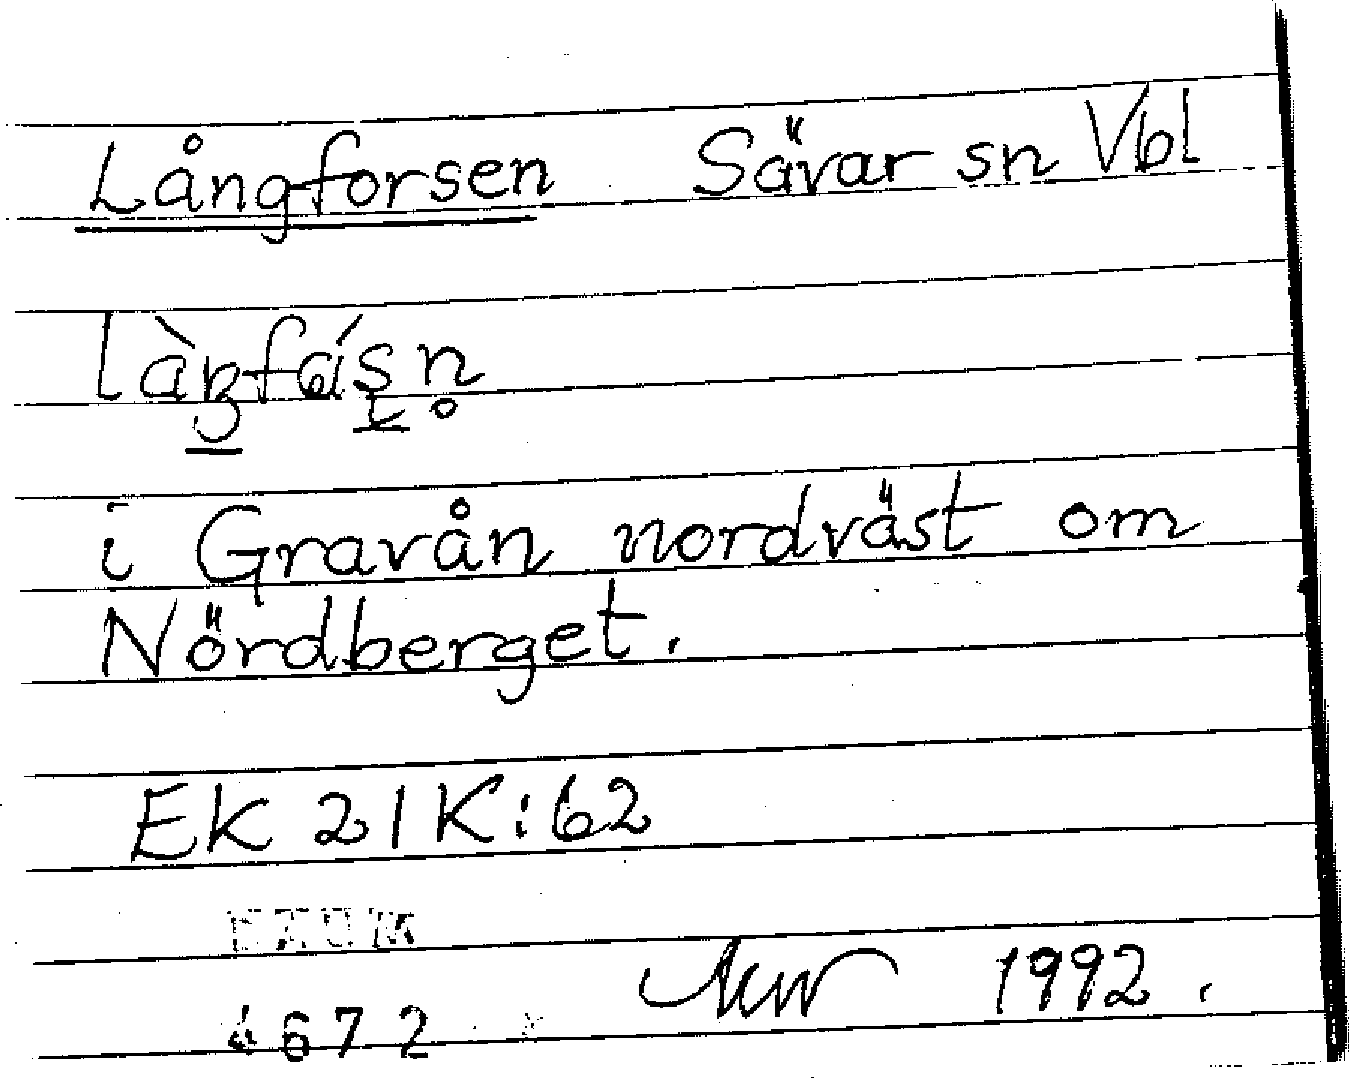 Långforsen Sävar sn Vbl
i Gravån nordväst om
Nördberget.
EK 21K:62
DAUM
4672
1992.